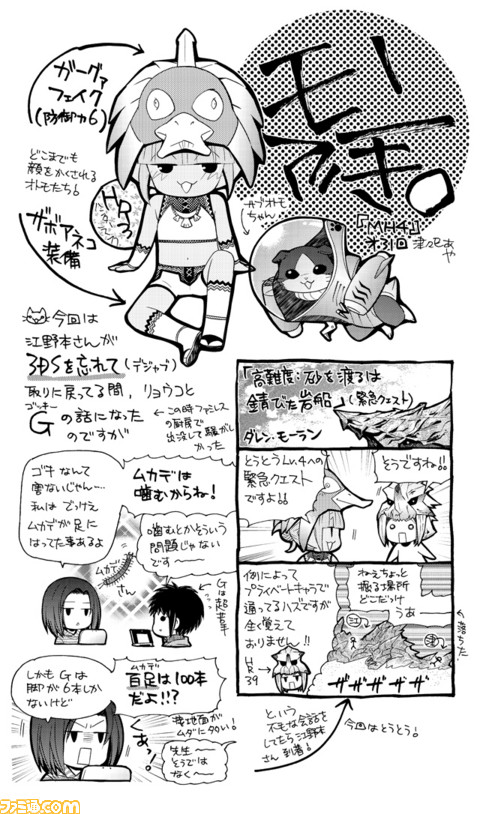 モ－アキ。
『MH4』
オ31回
津々巳あや
ガーグァ
フェイク
(防御力6)
どこまでも
顔をかくされる
オトモたち!
ザボアネコ
装備
HR3
サブオトモ
ちゃん
今回は
江野本さんが
3DSを忘れて(デジャブ)
取りに戻ってる間、リョウコと
ゴッキー
Gの話になった
のですが
←この時ファミレス
の厨房で
出没して騒がし
かった
ムカデは
噛むからね!
ゴキなんて
害ないじゃん…
私は でっけえ
ムカデが足に
はってた事あるよ
噛むとかそういう
問題じゃない
です〜
ムカデ
さん
Gは超苦手
ムカデ
百足は100本
だよ!!?
しかもGは
脚が6本しか
ないけど
接地面が
ムダに多い!
あっ!
先生〜
そうでは
なく〜
「高難度:砂を渡るは
錆びた岩船」(緊急クエスト)
ダレン・モーラン
そうですね!!
とうとうLv.4への
緊急クエスト
ですよ!!
例によって
プライベートキャラで
通ってるハズですが
全く覚えて
おりません!!
HR
39
ねえちょっと
掘る場所
どこだっけ
うあ
←落ちた
江
津
ザザザザザ
という
不毛な会話を
してたら江野本
さん到着!
今回はとうとう!
ファミ通.com